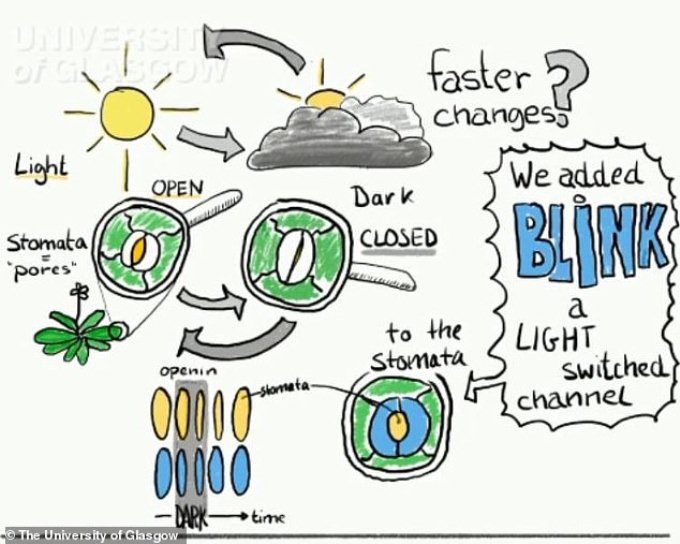 UNIVERSITY
of GLASGOW
faster
changes?
Light
OPEN
Dark
CLOSED
Stomata
=
"pores"
We added
BLiNK
a
LIGHT
switched
channel
to the
Stomata
openin
stomata
DARK
time
© The University of Glasgow